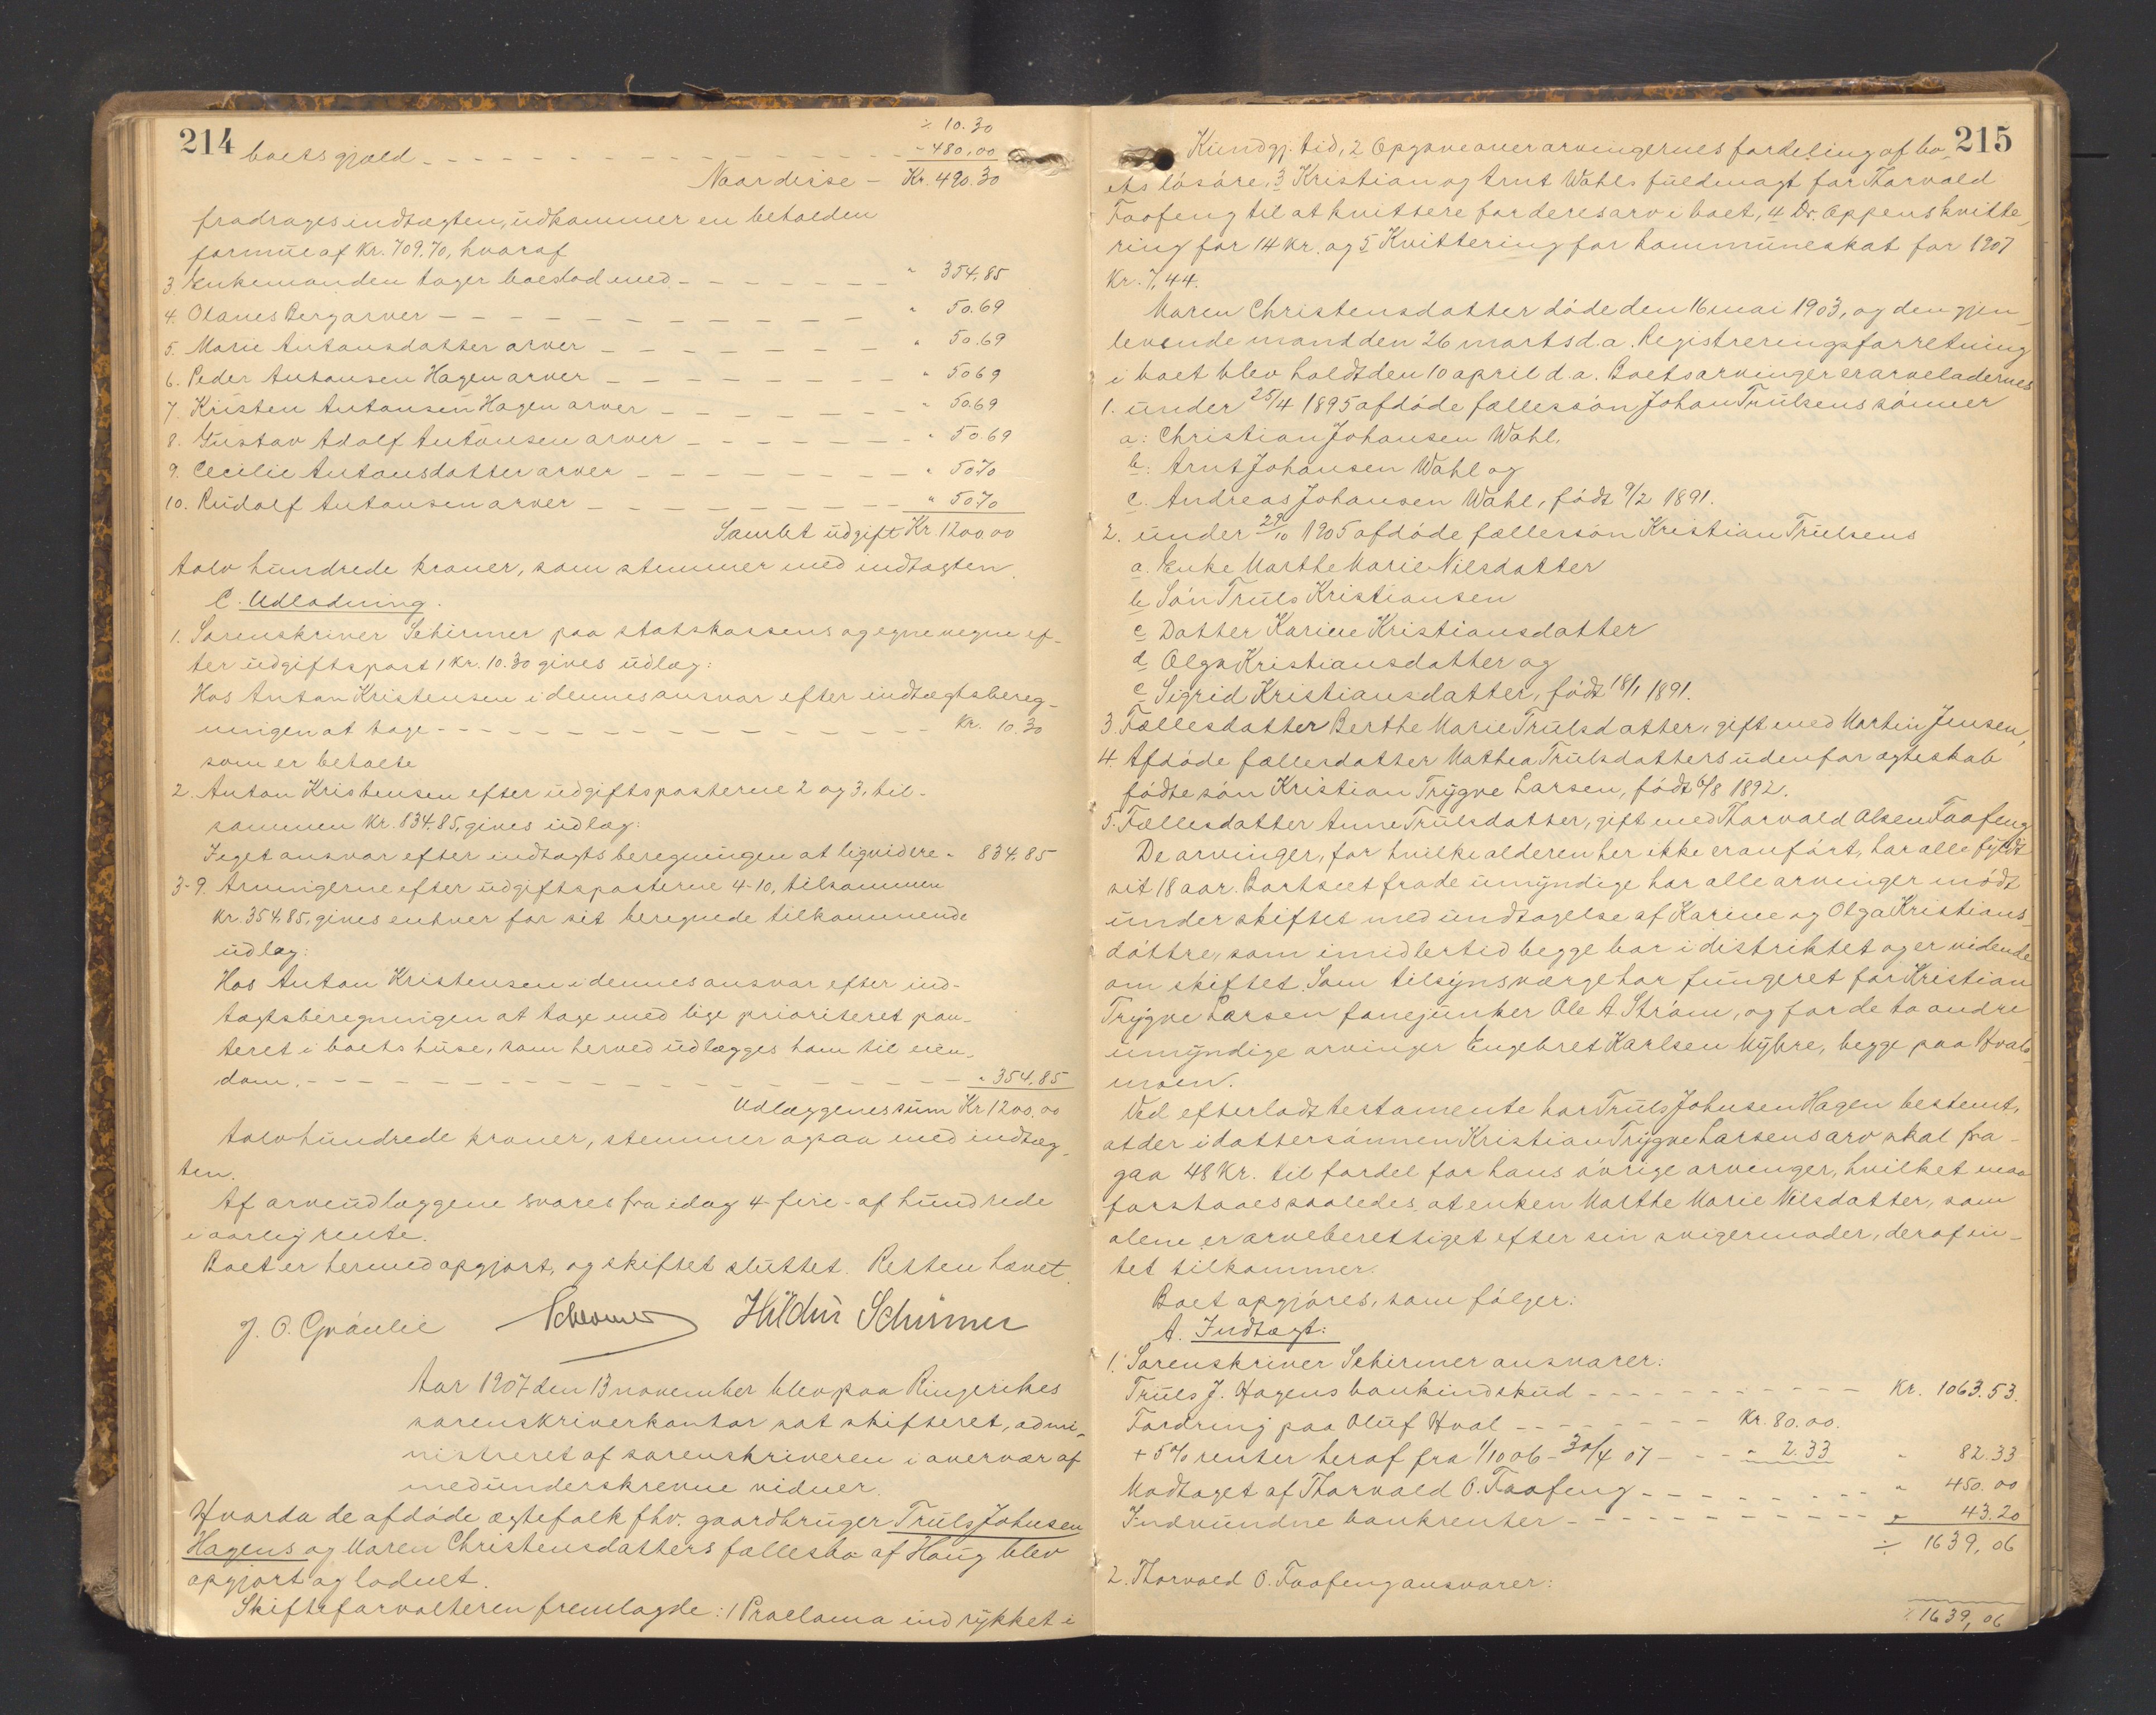 214
÷ 10.30
boets gjæld - - - - - - - - - - - - - 480,00
Naar disse - Kr. 490.30
fradrages indtægten, udkommer en beholden
formue af Kr. 709.70, hvoraf
3. Enkemanden tager boeslod med - - - - - - - " 354.85
4. Olaves Berg arver - - - - - - - - - - " 50.69
5. Marie Antonsdatter arver - - - - - - - " 50.69
6. Peder Antonsen Hagen arver - - - - - - - " 50 69
7. Kristen Antonsen Hagen arver - - - - - - " 50.69
8. Gustav Adolf Antonsen arver - - - - - - " 50.69
9. Cecilie Antonsdatter arver - - - - - - " 50 70
10. Rudolf Antonsen arver - - - - - - - " 50 70
Samlet udgift Kr. 1200.00
tolv hundrede kroner, som stemmer med indtægten.
C. Udlodning.
1. Sorenskriver Schirmer paa statskassens og egne vegne ef-
ter udgiftspost 1 Kr. 10.30 gives udlæg:
Hos Anton Kristensen i dennes ansvar efter indtægtsbereg-
ningen at tage - - - - - - - - - - - - - Kr. 10.30
som er betalte
2. Anton Kristensen efter udgiftsposterne 2 og 3, til-
sammen Kr. 834.85, gives udlæg:
I eget ansvar efter indtægtsberegningen at liqvidere " 834.85
3-9. Arvingerne efter udgiftsposterne 4-10, tilsammen
Kr. 354.85, gives enhver for sit beregnede tilkommende
udlæg:
Hos Anton Kristensen i dennes ansvar efter ind-
tægtsberegningen at tage med lige prioriteret pan-
teret i boets huse, som herved udlægges ham til eien-
dom. - - - - - - - - - - - - - - - - " 354.85
Udlæggenes sum Kr 1200.00
tolv hundrede kroner, stemmer ogsaa med indtæg-
ten.
Af arveudlæggene svares fra idag 4 - fire - af hundrede
i aarlig rente.
Boet er hermed opgjort, og skiftet sluttet. Retten hævet.
J. O. Gråulie Schirmer Hildur Schirmer
Aar 1907 den 13 november blev paa Ringerikes
sorenskriverkontor sat skifteret, admi-
nistreret af sorenskriveren i overvær af
medunderskrevne vidner.
Hvorda de afdøde ægtefolk fhv. gaardbruger Truls Johnsen
Hagens og Maren Christensdatters fællesbo af Haug blev
opgjort og loddet.
Skifteforvalteren fremlagde: 1 Proclama indrykket i
215
Kundgj. tid, 2 Opgave over arvingernes fordeling af bo-
ets løsøre, 3 Kristian og Arnt Wahls fuldmagt for Thorvald
Faafeng til at kvittere for deres arv i boet, 4 Dr. Oppens kvitte-
ring for 14 kr. og 5 Kvittering for kommuneskat for 1907
Kr. 7,44.
Maren Christensdatter døde den 16 mai 1903, og den gjen-
levende mand den 26 marts d.a. Registreringsforretning
i boet blev holdt den 10 april d.a. Boets arvinger er arveladernes
1. under 25/4 1895 afdøde fællessøn Johan Trulsens sønner
a: Christian Johansen Wahl.
b: Arnt Johansen Wahl og
c. Andreas Johansen Wahl, født 9/2 1891.
2. under 29/10 1905 afdøde fællessøn Kristian Trulsens
a. Enke Marthe Marie Nilsdatter
b Søn Truls Kristiansen
c Datter Karine Kristiansdatter
d Olga Kristiansdatter og
e Sigrid Kristiansdatter, født 18/1 1891.
3 Fællesdatter Berthe Marie Trulsdatter, gift med Martin Jensen,
4 Afdøde fællesdatter Mathea Trulsdatters udenfor ægteskab
fødte søn Kristian Trygve Larsen, født 6/8 1892.
5. Fællesdatter Anne Trulsdatter, gift med Thorvald Olsen Faafeng
De arvinger, for hvilke alderen her ikke er anført, har alle fyldt
sit 18 aar. Bortseet fra de umyndige har alle arvinger mødt
under skiftet med undtagelse af Karine og Olga Kristians-
døttre, som imidlertid begge bor i distriktet og er vidende
om skiftet. Som tilsynsværge har fungeret for Kristian
Trygve Larsen fanejunker Ole A Strøm, og for de to andre
umyndige arvinger Engebret Karlsen Myhre, begge paa Hvals-
moen.
Ved efterladt testamente har Truls Johnsen Hagen bestemt,
at der i dattersønnen Kristian Trygve Larsens arv skal fra-
gaa 48 Kr. til fordel for hans øvrige arvinger, hvilket maa
forstaaes saaledes, at enken Marthe Marie Nilsdatter, som
alene er arveberettiget efter sin svigermoder, deraf in-
tet tilkommer.
Boet opgjøres, som følger:
A. Indtægt:
1. Sorenskriver Schirmer ansvarer:
Truls J. Hagens bankindskud - - - - - - - - - - Kr. 1063.53.
Fordring paa Oluf Hval - - - - - - - Kr. 80.00.
+ 5% renter heraf fra 1/10 06 - 30/4 07 - - - " 2.33 " 82.33
Modtaget af Thorvald O. Faafeng - - - - - - - - " 450.00
Indvundne bankrenter - - - - - - - - - - - " 43.20
÷ 1639,06
2. Thorvald O. Faafeng ansvarer:
÷ 1639,06